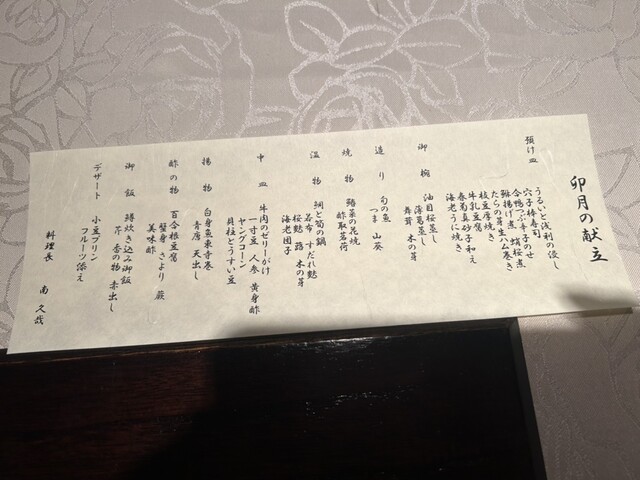 卯月の献立
預け皿
うるいと浅利の浸し
穴子棒寿司
合鴨つぶ辛子のせ
鰊揚げ煮 蛸桜煮
たらの芽生ハム巻き
枝豆厚焼き
牛乳豆腐
春菊真砂子和え
海老うに焼き
御椀
油目桜蒸し
薄葛蒸し
舞茸 木の芽
造り
旬の魚
つま 山葵
焼物
鰆菜の花焼
酢取茗荷
温物
鯛と筍の鍋
若布 すだれ麩
桜麩 蕗 木の芽
海老団子
中皿
牛肉のゼリーがけ
一寸豆 人参 黄身酢
ヤングコーン
貝柱とうすい豆
揚物
白身魚東寺巻
青唐 天出し
酢の物
百合根豆腐
蟹身 さより 蕨
美味酢
御飯
鱒炊き込み御飯
芹 香の物 赤出し
デザート
小豆プリン
フルーツ添え
料理長 南 久哉